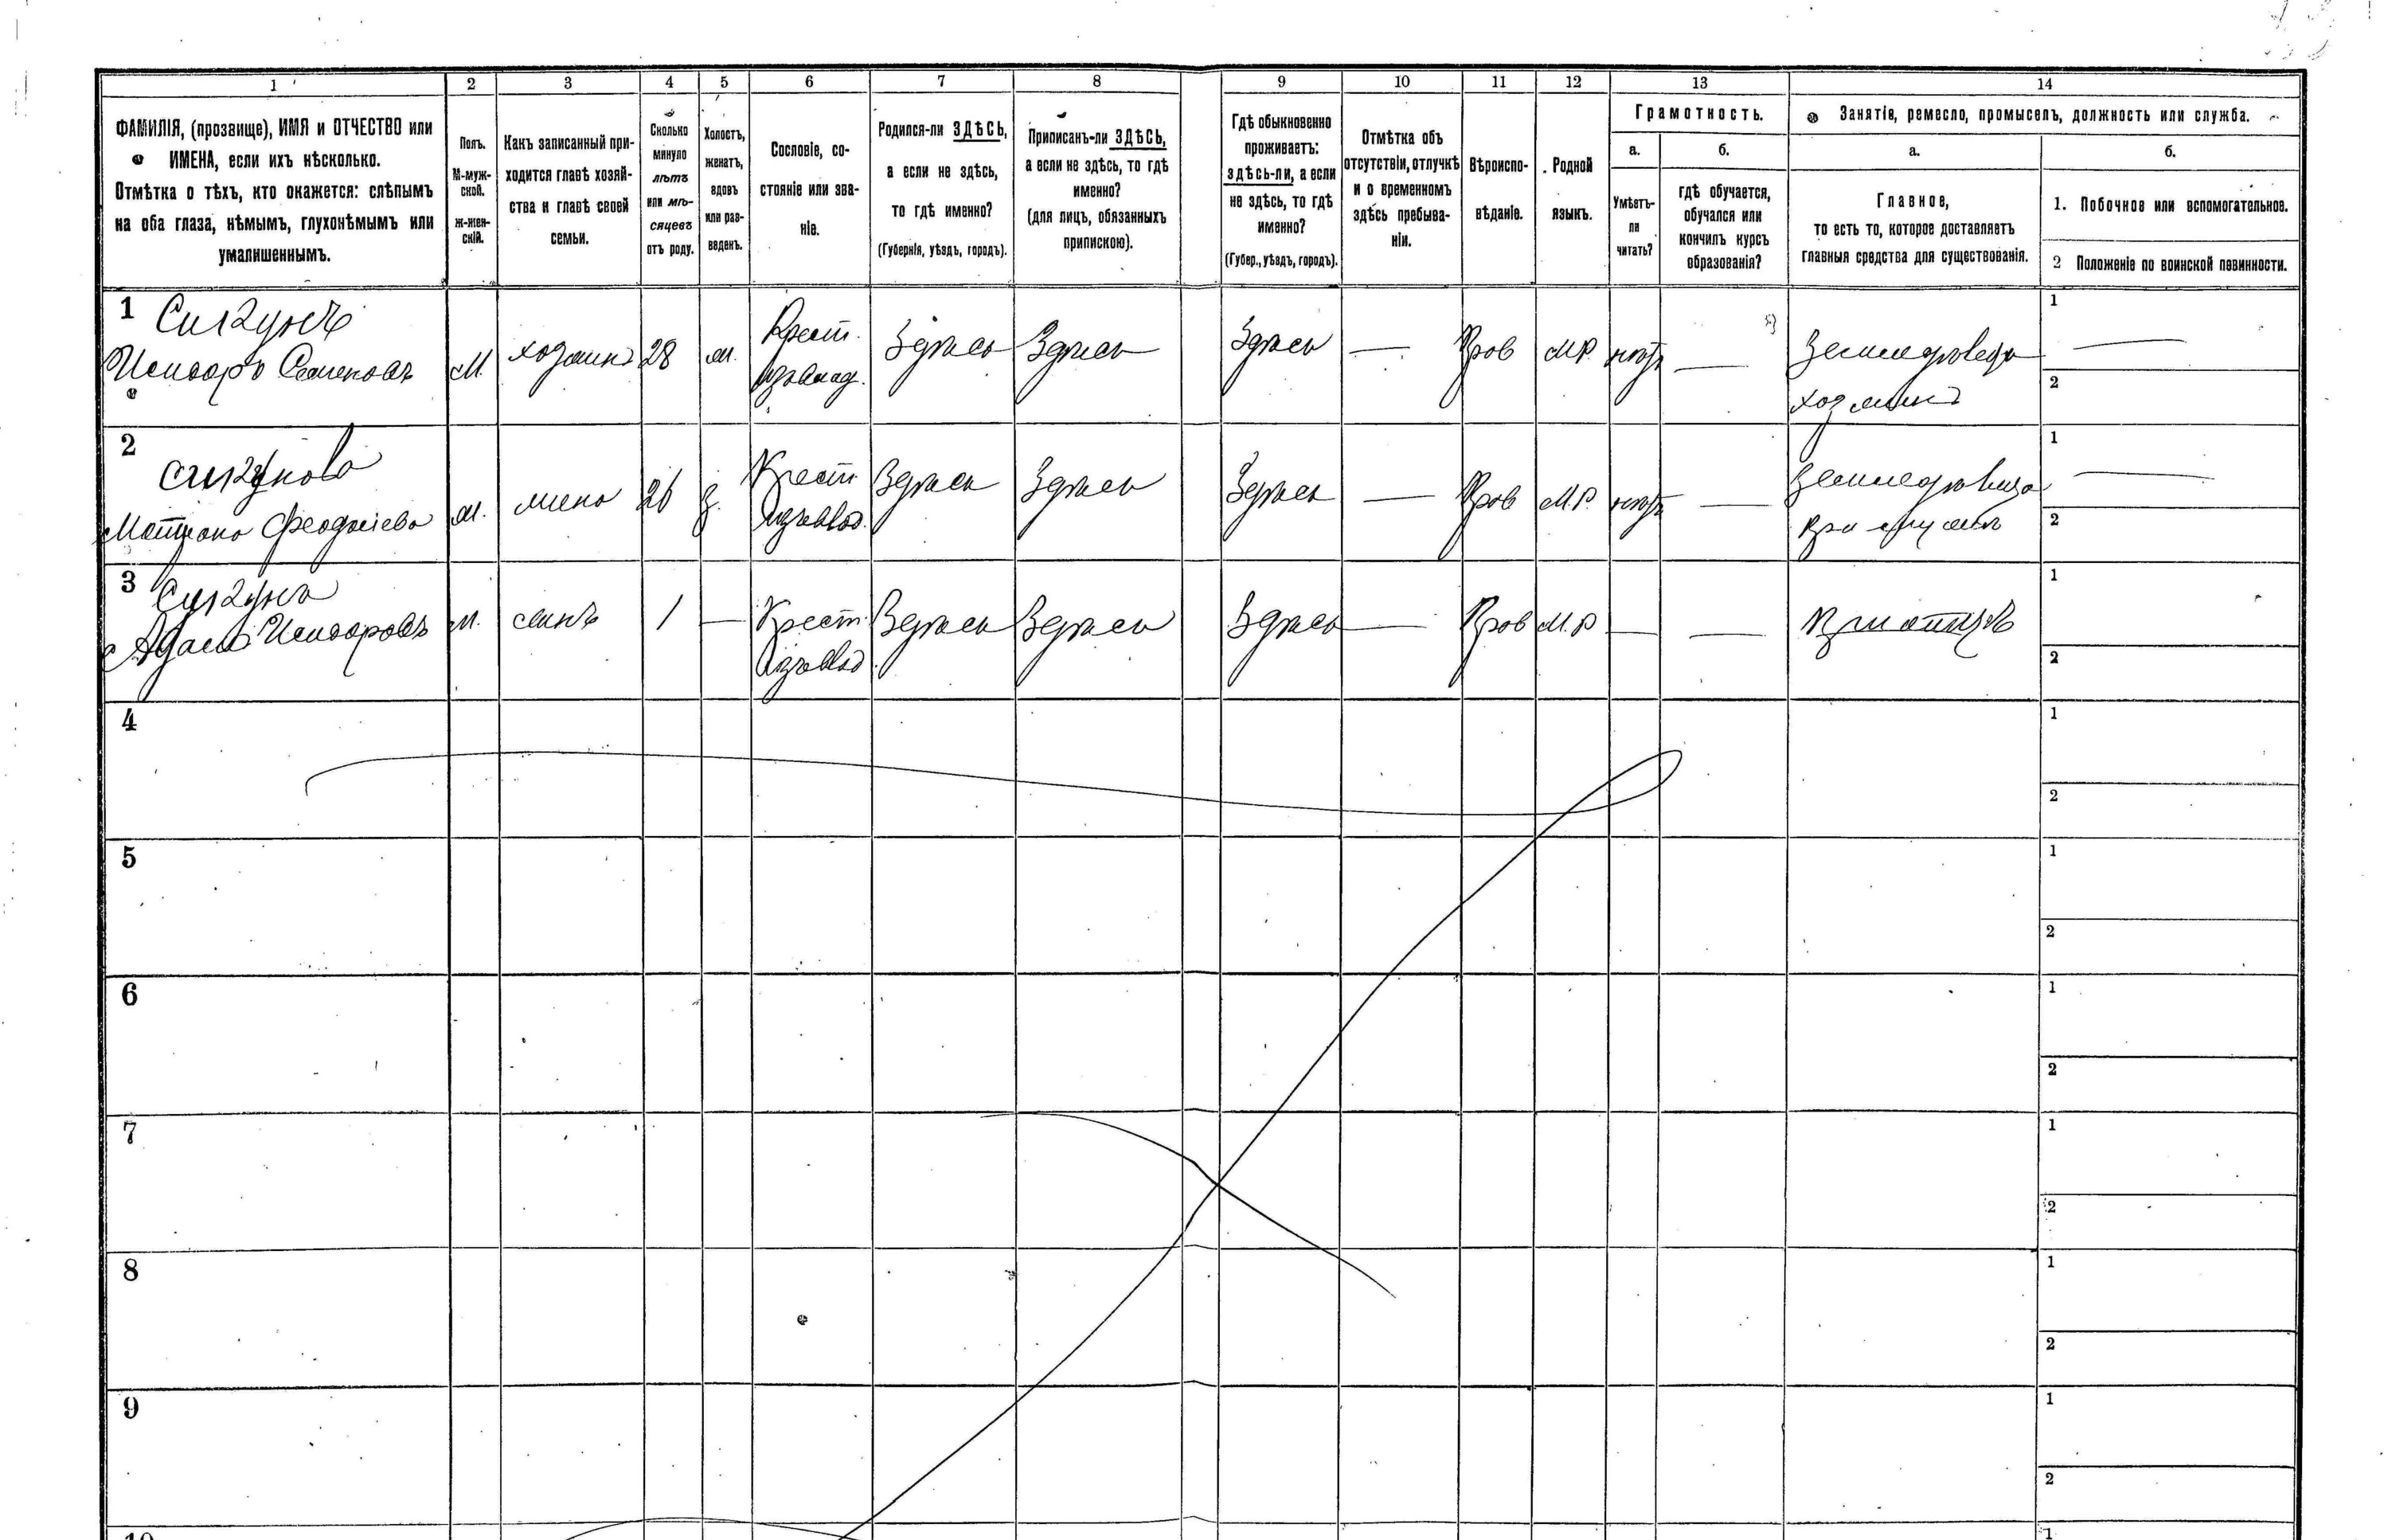 1 2 3 4 5 6 7 8 9 10 11 12 13 14
ФАМИЛІЯ, (прозвище), ИМЯ и ОТЧЕСТВО или
ИМЕНА, если ихъ нѣсколько.
Отмѣтка о тѣхъ, кто окажется: слѣпымъ
на оба глаза, нѣмымъ, глухонѣмымъ или
умалишеннымъ.
Полъ.
М-муж-
ской.
Ж-жен-
скій.
Какъ записанный при-
ходится главѣ хозяй-
ства и главѣ своей
семьи.
Сколько
минуло
лѣтъ
или мѣ-
сяцевъ
отъ роду.
Холостъ,
женатъ,
вдовъ
или раз-
веденъ.
Сословіе, со-
стояніе или зва-
ніе.
Родился-ли ЗДѢСЬ,
а если не здѣсь,
то гдѣ именно?
(Губернія, уѣздъ, городъ).
Приписанъ-ли ЗДѢСЬ,
а если не здѣсь, то гдѣ
именно?
(для лицъ, обязанныхъ
припискою).
Гдѣ обыкновенно
проживаетъ:
здѣсь-ли, а если
не здѣсь, то гдѣ
именно?
(Губер., уѣздъ, городъ).
Отмѣтка объ
отсутствіи, отлучкѣ
и о временномъ
здѣсь пребыва-
ніи.
Вѣроиспо-
вѣданіе.
Родной
языкъ.
Грамотность.
а.
Умѣетъ-
ли
читать?
б.
гдѣ обучается,
обучался или
кончилъ курсъ
образованія?
Занятіе, ремесло, промыселъ, должность или служба.
а.
Главное,
то есть то, которое доставляетъ
главныя средства для существованія.
б.
1. Побочное или вспомогательное.
2 Положеніе по воинской повинности.
1
Исидоръ Семеновъ
М.
хозяинъ
28
Крест.
Здѣсь
Здѣсь
Здѣсь
—
Прав
М.Р.
нѣтъ
—
хозяинъ
1 —
2
2
Матрона
26
Крест.
Здѣсь
Здѣсь
Здѣсь
—
Прав
М.Р.
нѣтъ
—
при мужѣ
1 —
2
3
Адамъ Исидоровъ
М.
сынъ
1
—
Крест.
Здѣсь
Здѣсь
Здѣсь
—
Прав
М.Р
—
—
При отцѣ
1
2
4
1
2
5
1
2
6
1
2
7
1
2
8
1
2
9
1
2
10
1